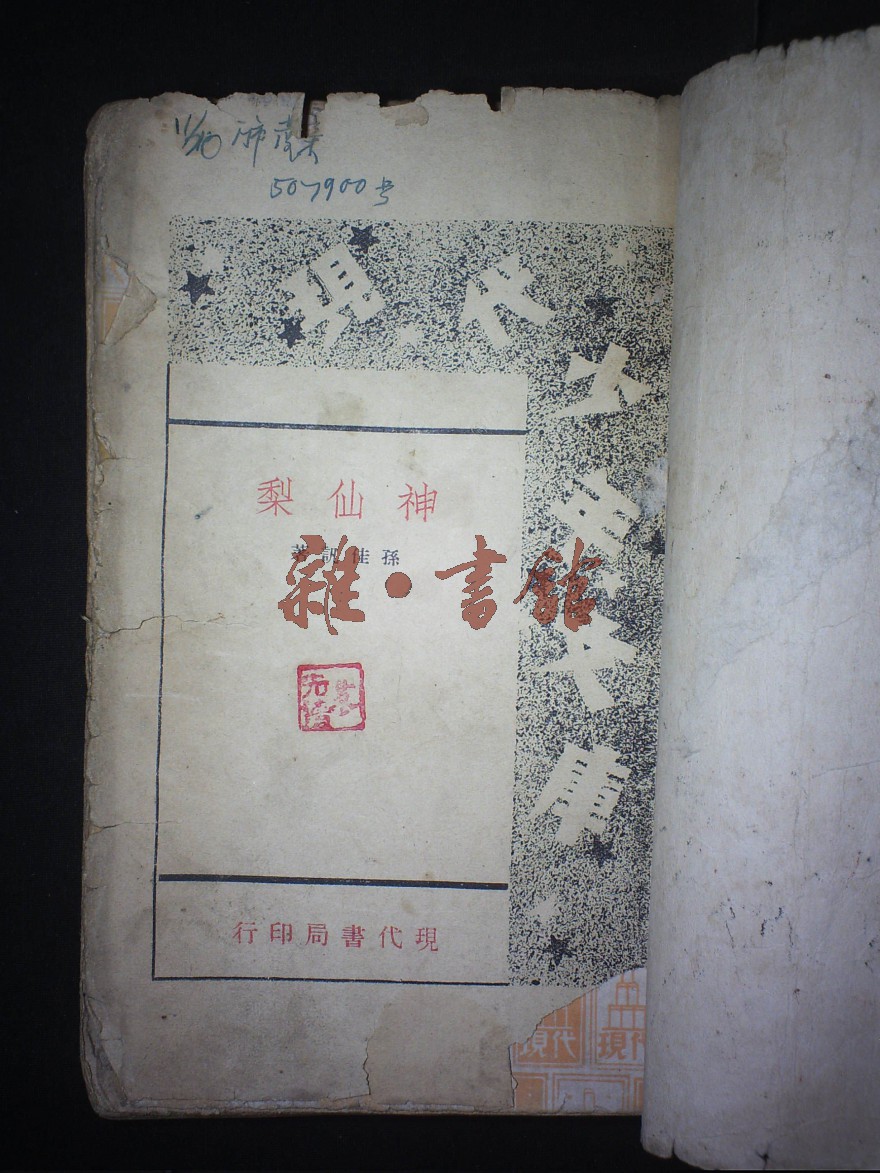 507900号
現代少年文庫
神仙梨
孫佳訊著
雜·書館
現代書局印行
現代 現代